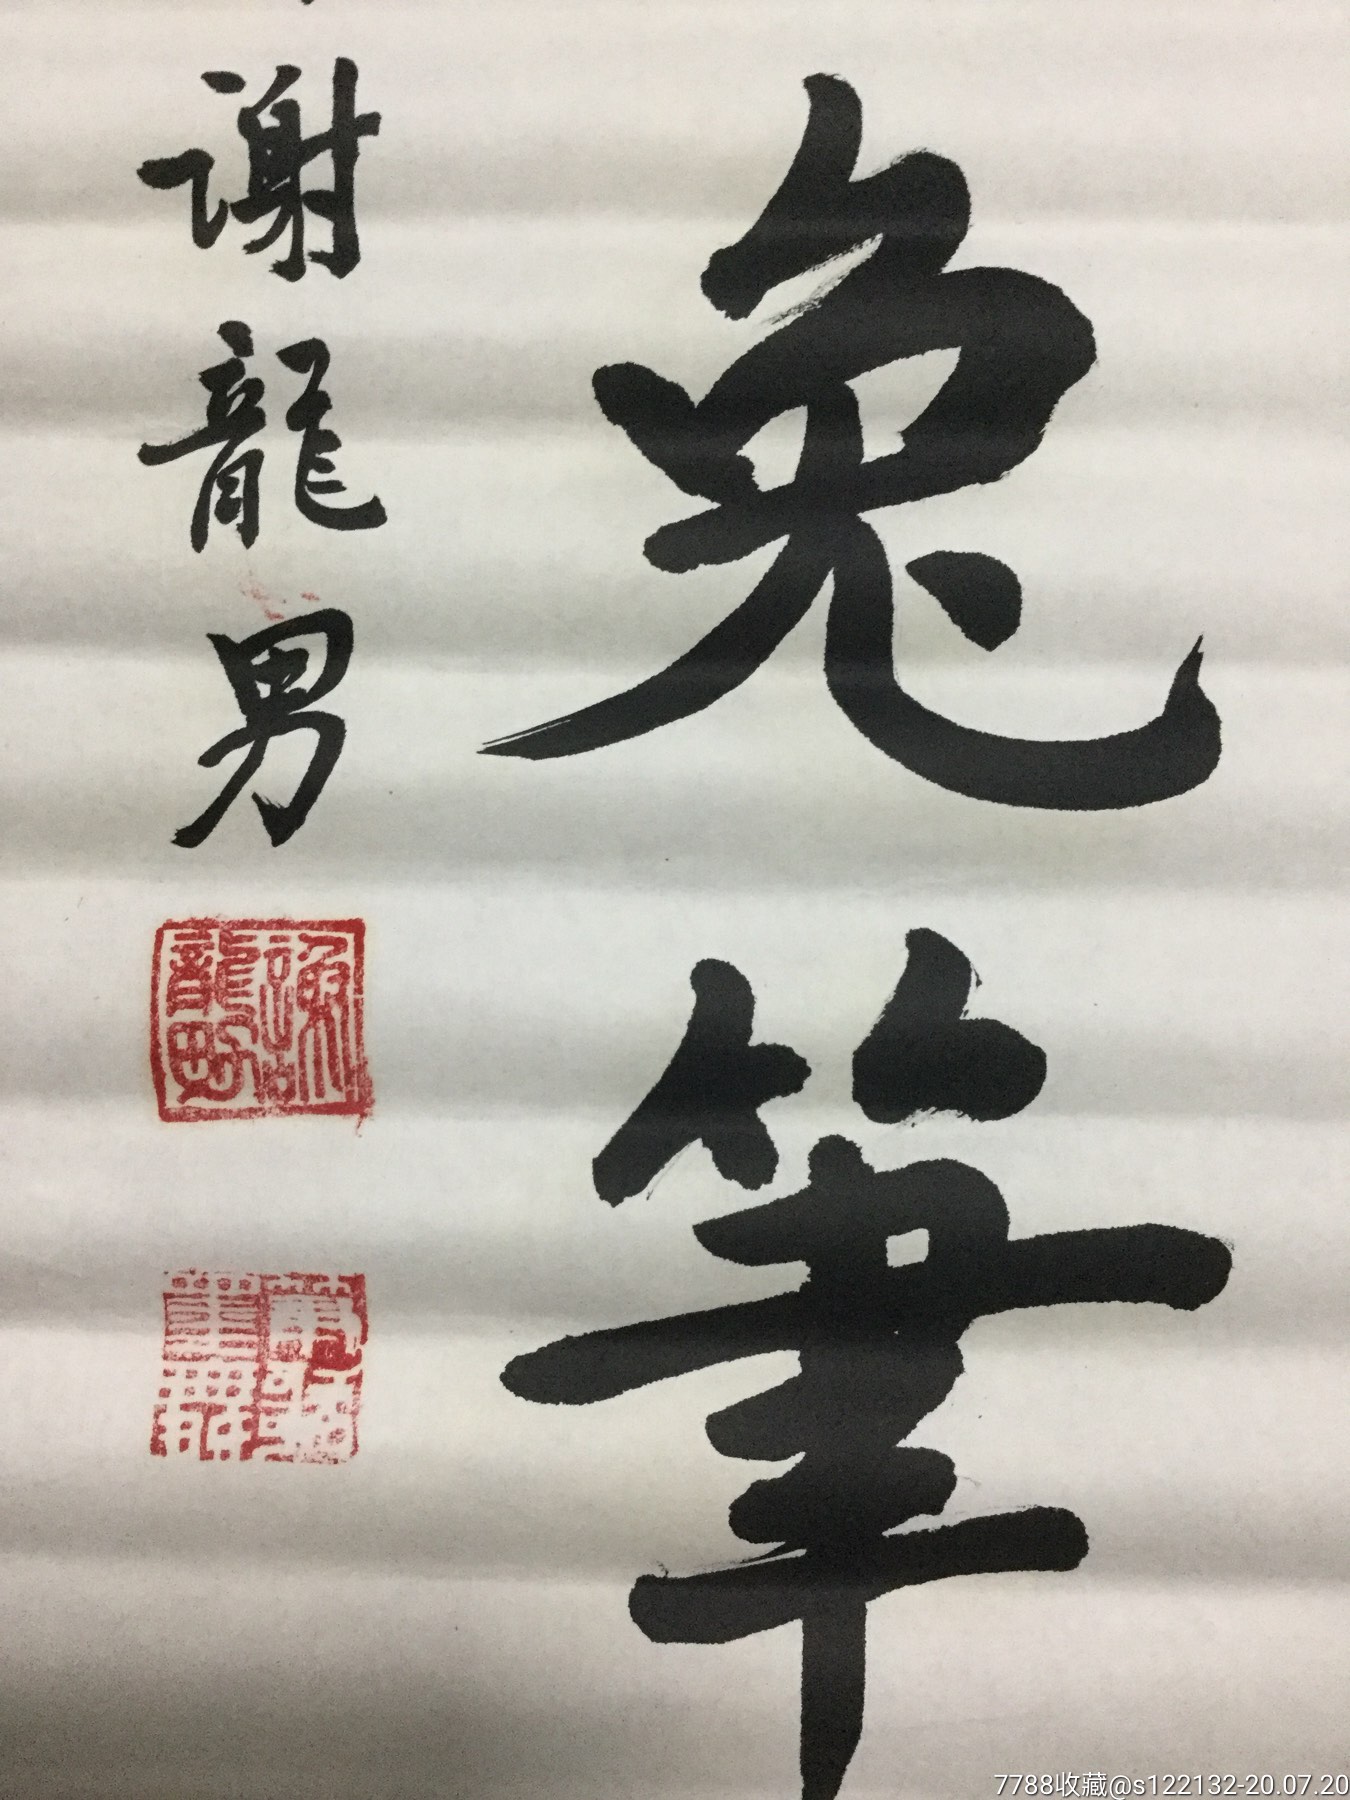 兔筆
谢龍男
謝龍男
7788收藏@s122132-20.07.20